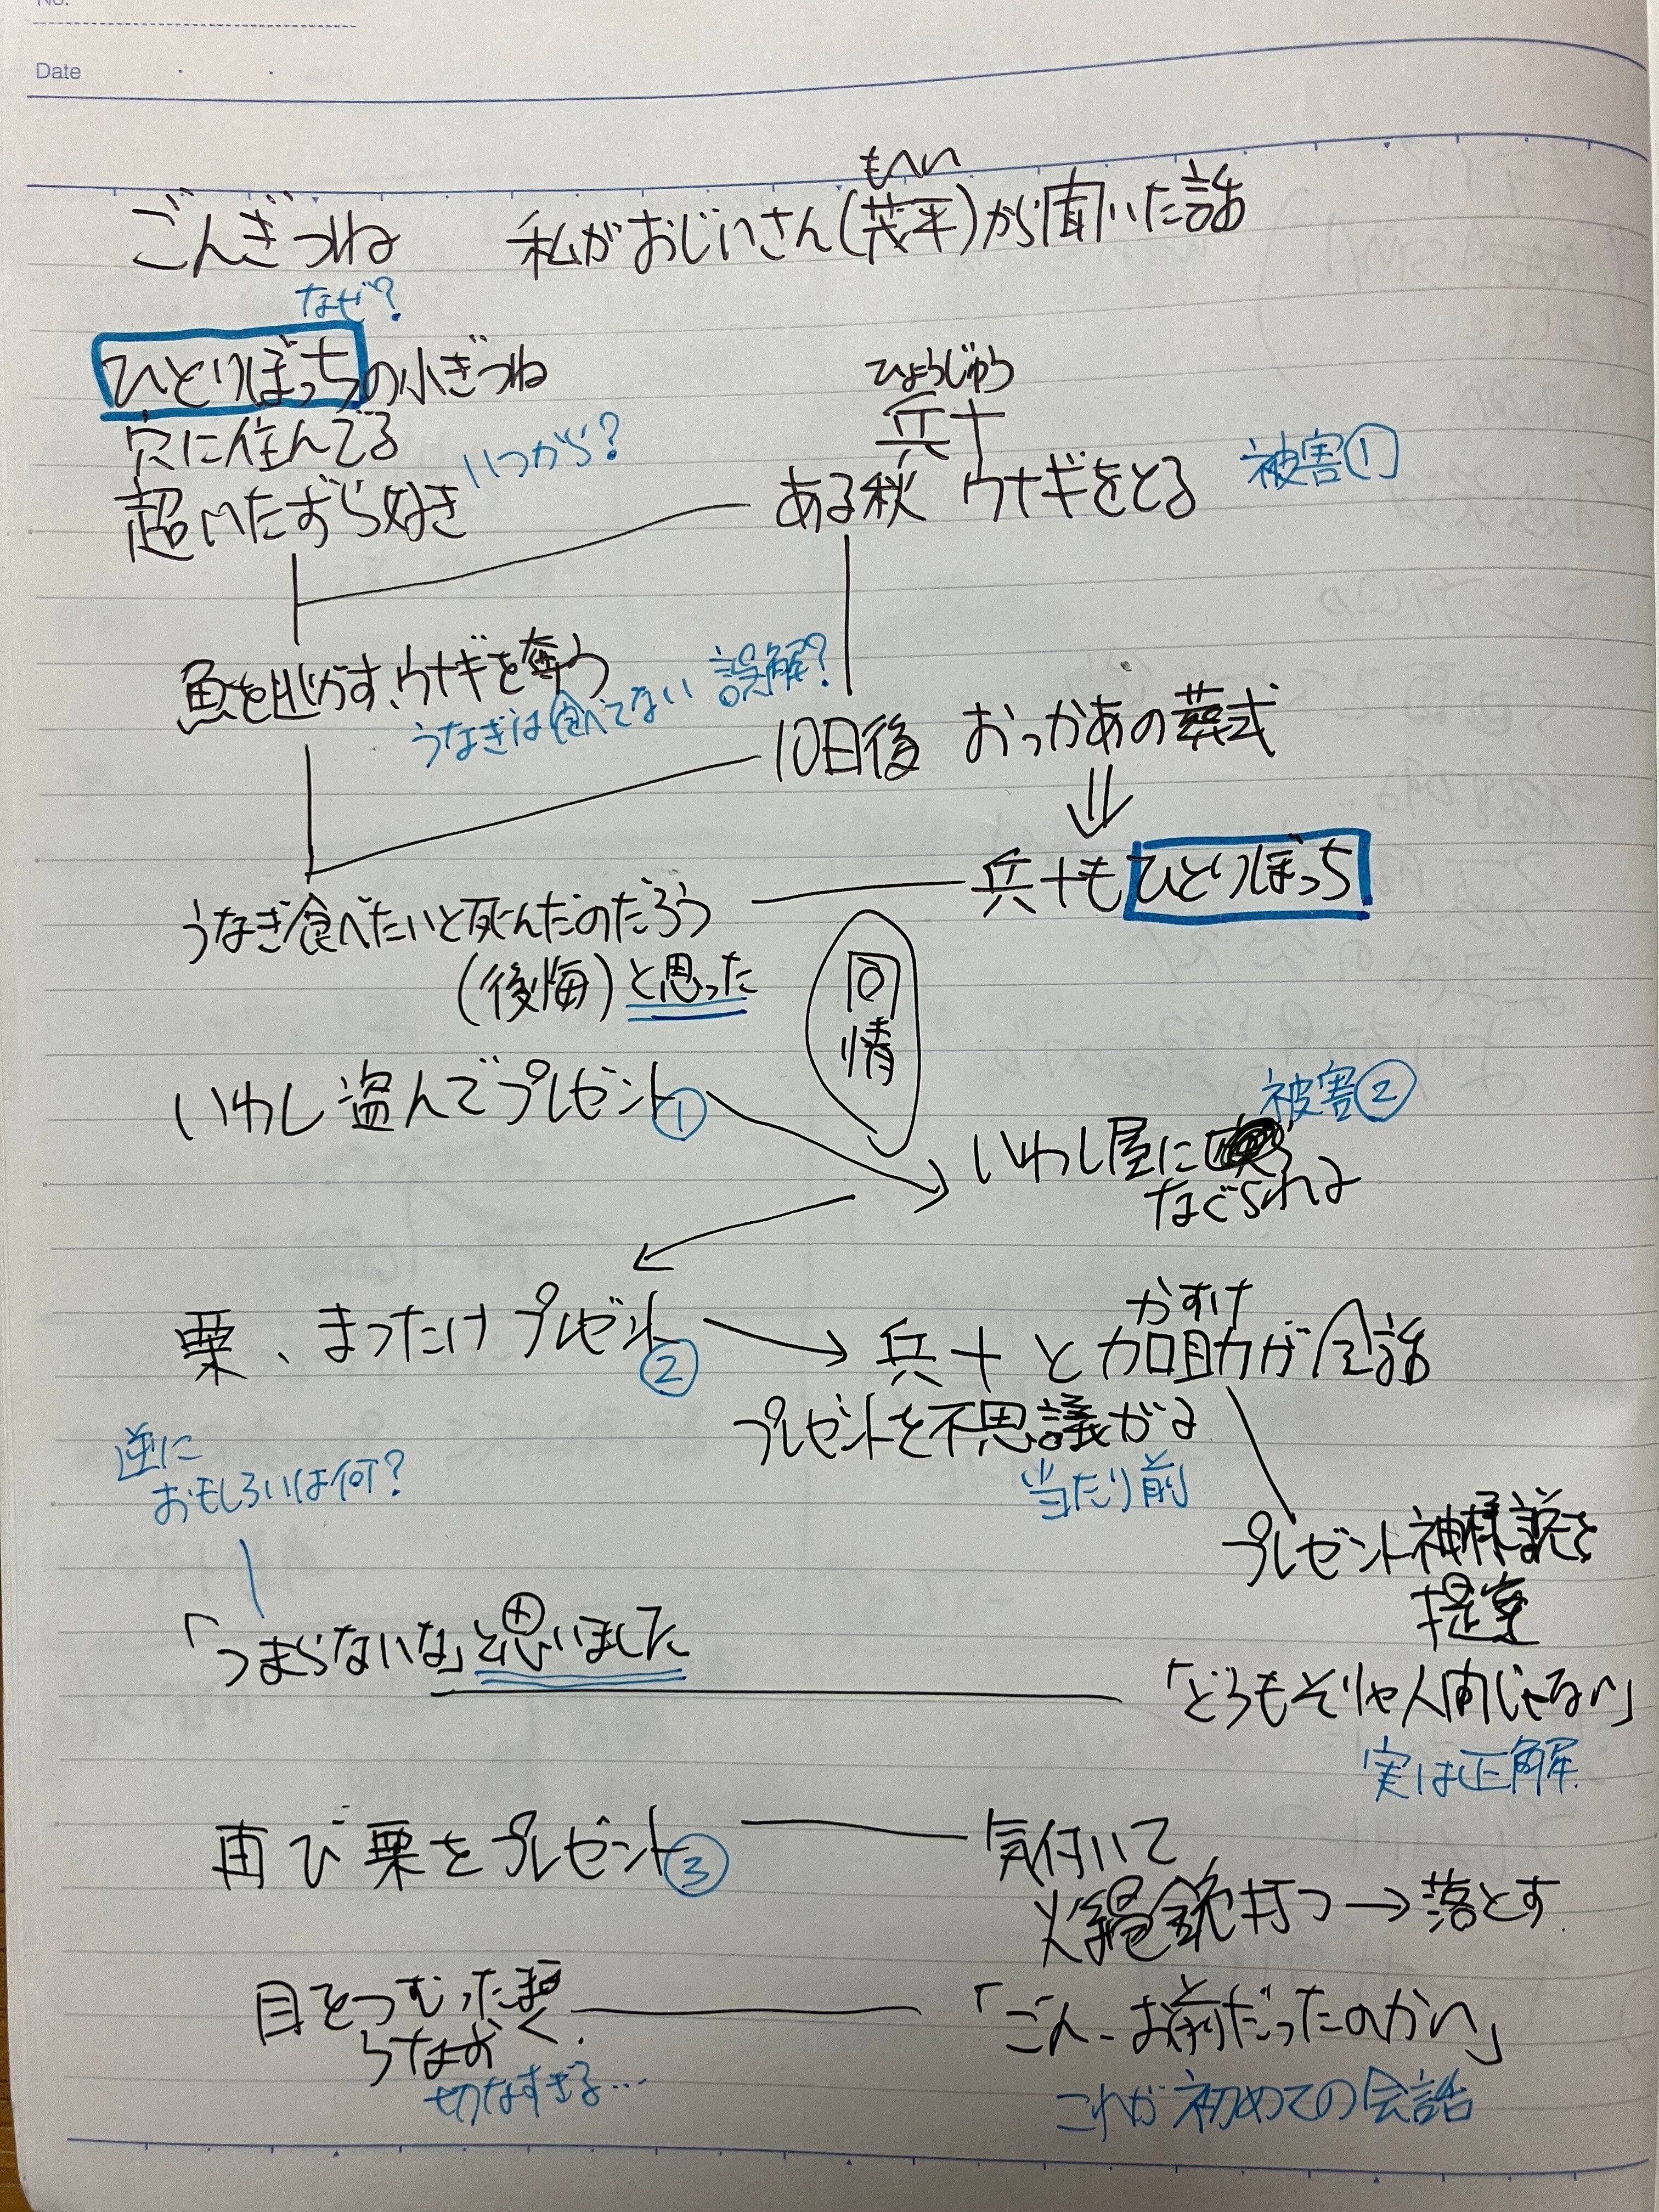 No.
Date
ごんぎつね 私がおじいさん(茂平)から聞いた話
もへい
なぜ?
ひとりぼっちの小ぎつね
穴に住んでる
いつから?
超いたずら好き
ひょうじゅう
兵十
ある秋 ウナギをとる
被害①
魚を逃がす、ウナギを奪う
うなぎは食べてない 誤解?
10日後 おっかあの葬式
兵十もひとりぼっち
うなぎ食べたいと死んだのだろう
(後悔)と思った
同情
いわし盗んでプレゼント①
被害②
いわし屋に
なぐられる
栗、まつたけプレゼント②
かすけ
兵十と加助が会話
プレゼントを不思議がる
当たり前
プレゼント神様説を
提案
逆に
おもしろいは何?
「つまらないな」と思いました
「どうもそりゃ人間じゃない」
実は正解
再び栗をプレゼント③
気付いて
火縄銃打つ→落とす
目をつむったまま
うなずく.
切なすぎる…
「ごん、お前だったのかい」
これが初めての会話